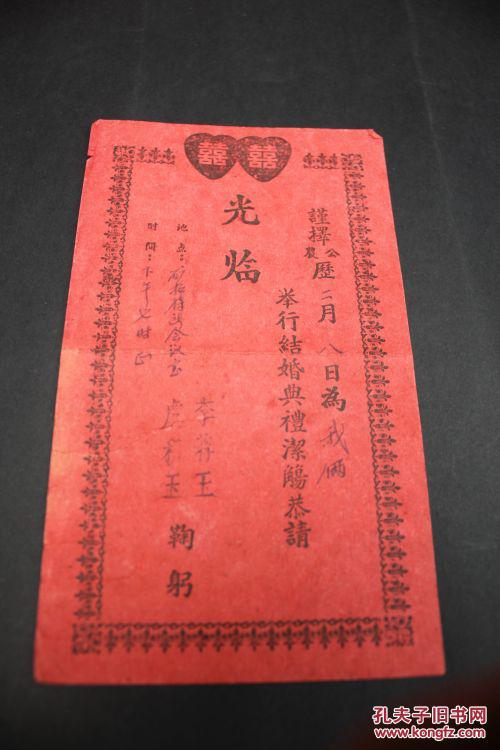 囍 囍
謹擇公農歷二月八日為我倆
举行結婚典禮潔觴恭請
光临
李 王
玉 鞠躬
地点: 会议室
时間:下午七时正
孔夫子旧书网
www.kongfz.com